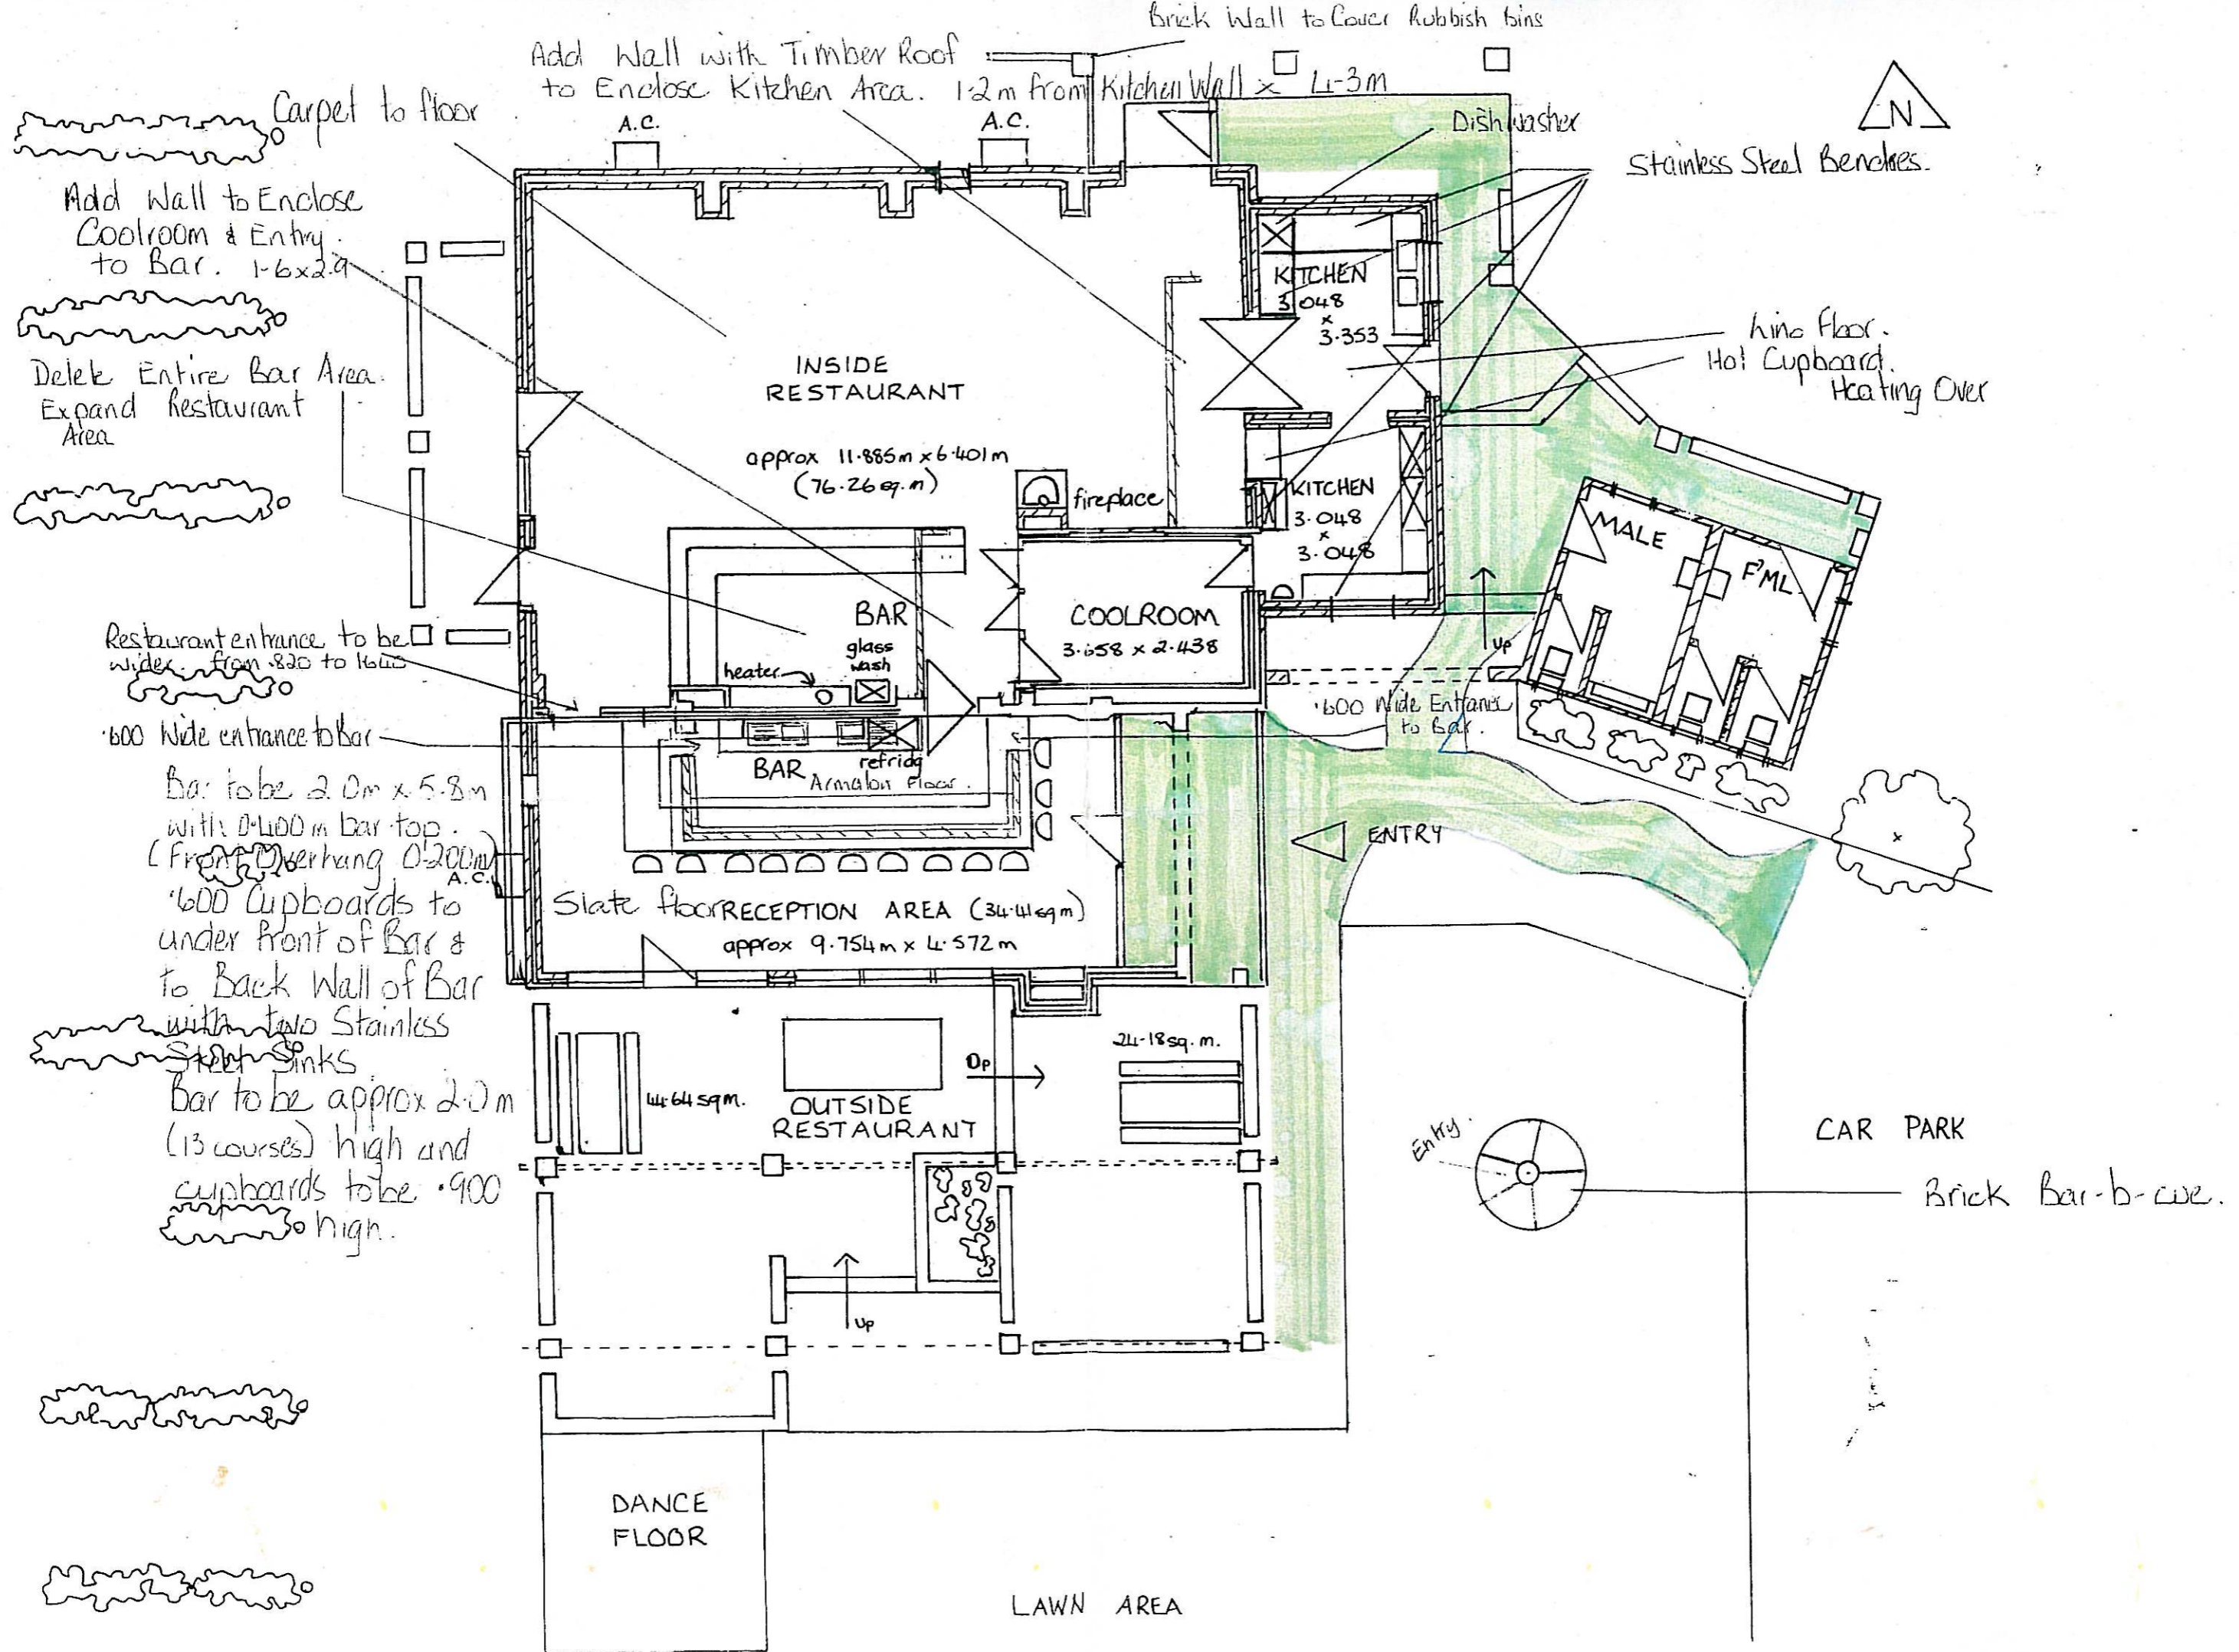 Brick Wall to Cover Rubbish bins
Add Wall with Timber Roof
to Enclose Kitchen Area. 1·2m from Kitchen Wall x 4·3m
Carpet to floor
A.C.
A.C.
Dishwasher
N
Stainless Steel Benches.
Add Wall to Enclose
Coolroom & Entry
to Bar. 1·6x2.9
KITCHEN
3·048
x
3·353
Lino Floor.
Hot Cupboard.
Heating Over
Delete Entire Bar Area.
Expand Restaurant
Area
INSIDE
RESTAURANT
approx 11·885m x 6·401m
(76·26 sq.m)
fireplace
KITCHEN
3·048
x
3·048
MALE
F'ML
BAR
glass
wash
heater
COOLROOM
3·658 x 2·438
Up
Restaurant entrance to be
wider. from ·820 to 1640
·600 Wide entrance to Bar
·600 Wide Entrance
to Bar.
BAR
refridg
Armalon Floor.
Bar to be 2.0m x 5.8m
with 0·400m bar top.
(Front Overhang 0·200m)
A.C.
·600 Cupboards to
under front of Bar &
to Back Wall of Bar
with two Stainless
Steel Sinks
Bar to be approx 2.0m
(13 courses) high and
cupboards to be ·900
high.
ENTRY
Slate floor
RECEPTION AREA (34·41 sq m)
approx 9·754m x 4·572m
44·64 sq m.
OUTSIDE
RESTAURANT
Up
24·18 sq. m.
Entry.
CAR PARK
Brick Bar-b-cue.
Up
DANCE
FLOOR
LAWN AREA